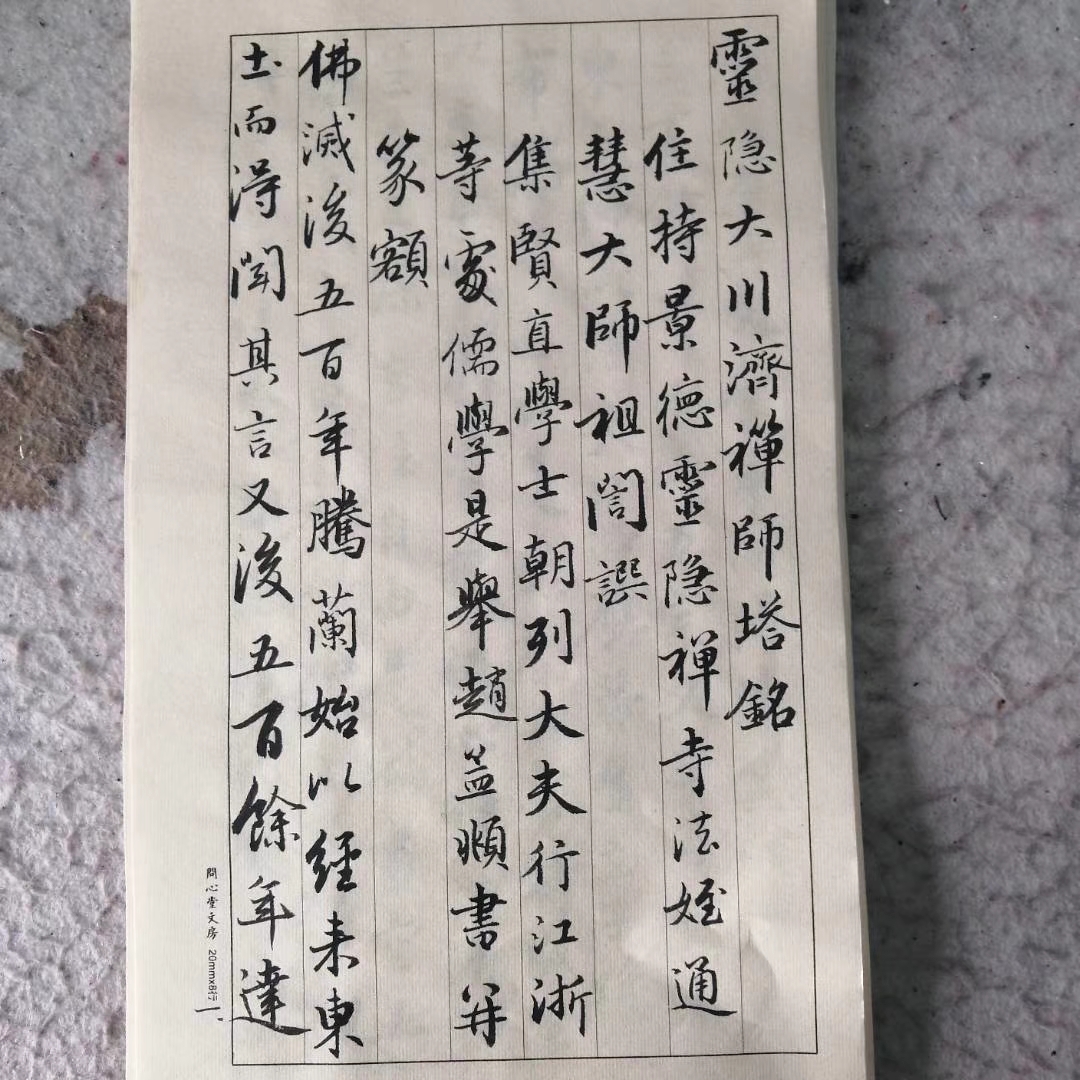 靈隐大川濟禪師塔銘
住持景德靈隐禅寺法姪通
慧大師祖誾譔
集賢直學士朝列大夫行江浙
等處儒學是舉趙孟頫書并
篆額
佛滅後五百年騰蘭始以經来東
土而得聞其言又後五百餘年達
問心堂文房 20mmx8行